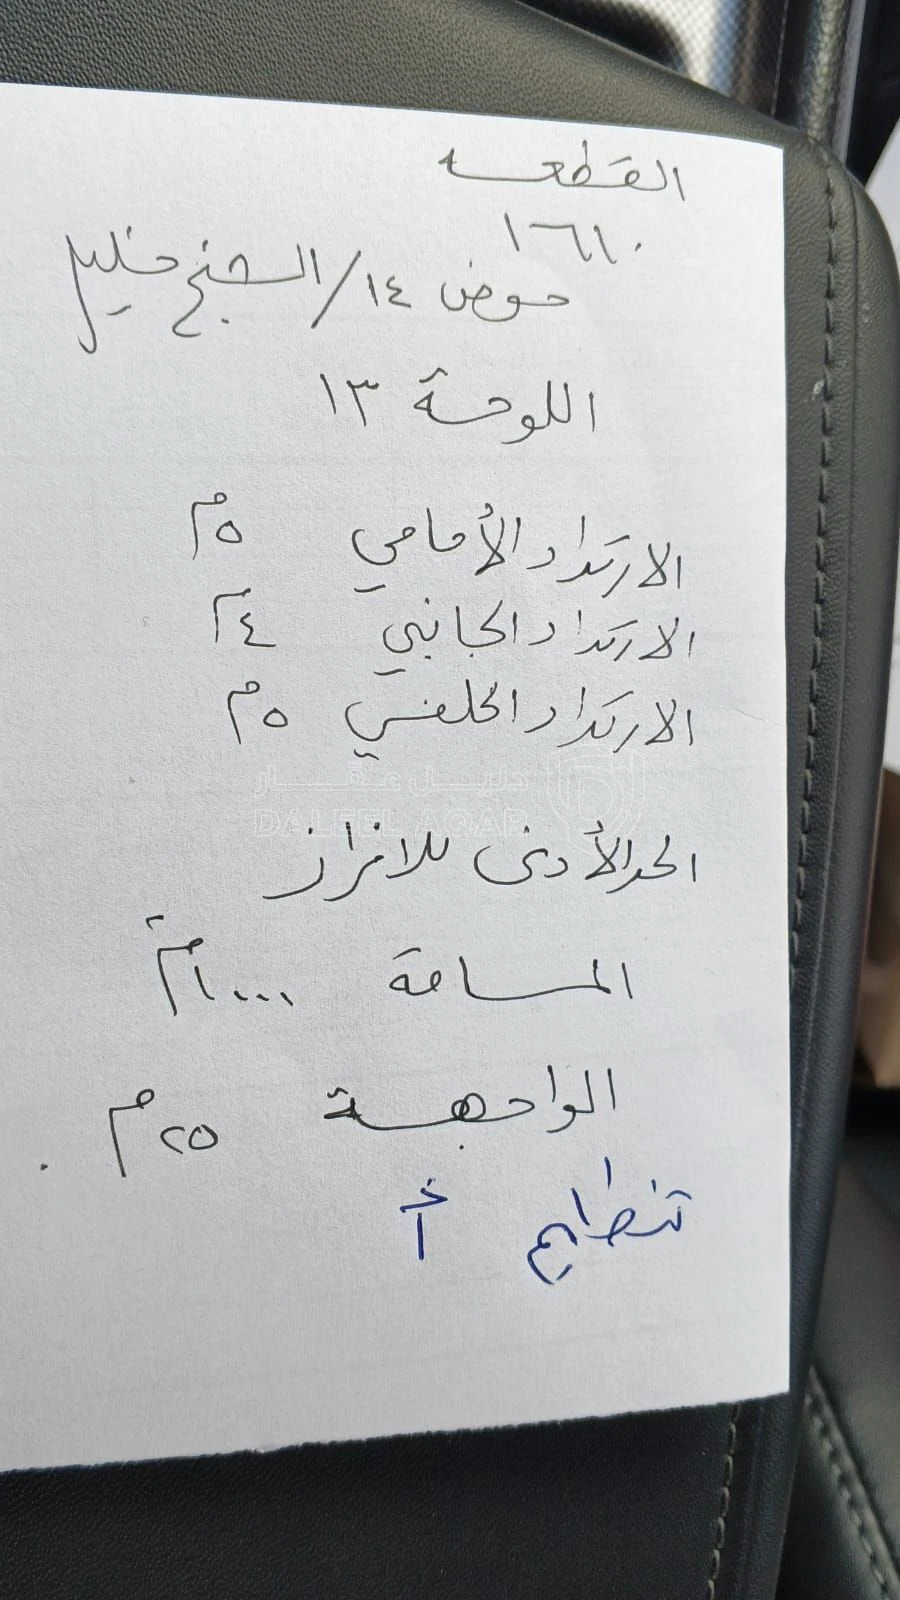 القطعه
١٦١٠
حوض ١٤/الشيخ خليل
اللوحة ١٣
الارتداد الأمامي ٥م
الارتداد الجانبي ٤م
الارتداد الخلفي ٥م
دليل عقار
DALEEL AQAR
الحد الأدنى للافراز
المساحة ١٠٠٠م٢
الواجهة ٢٥م
تنظيم أ